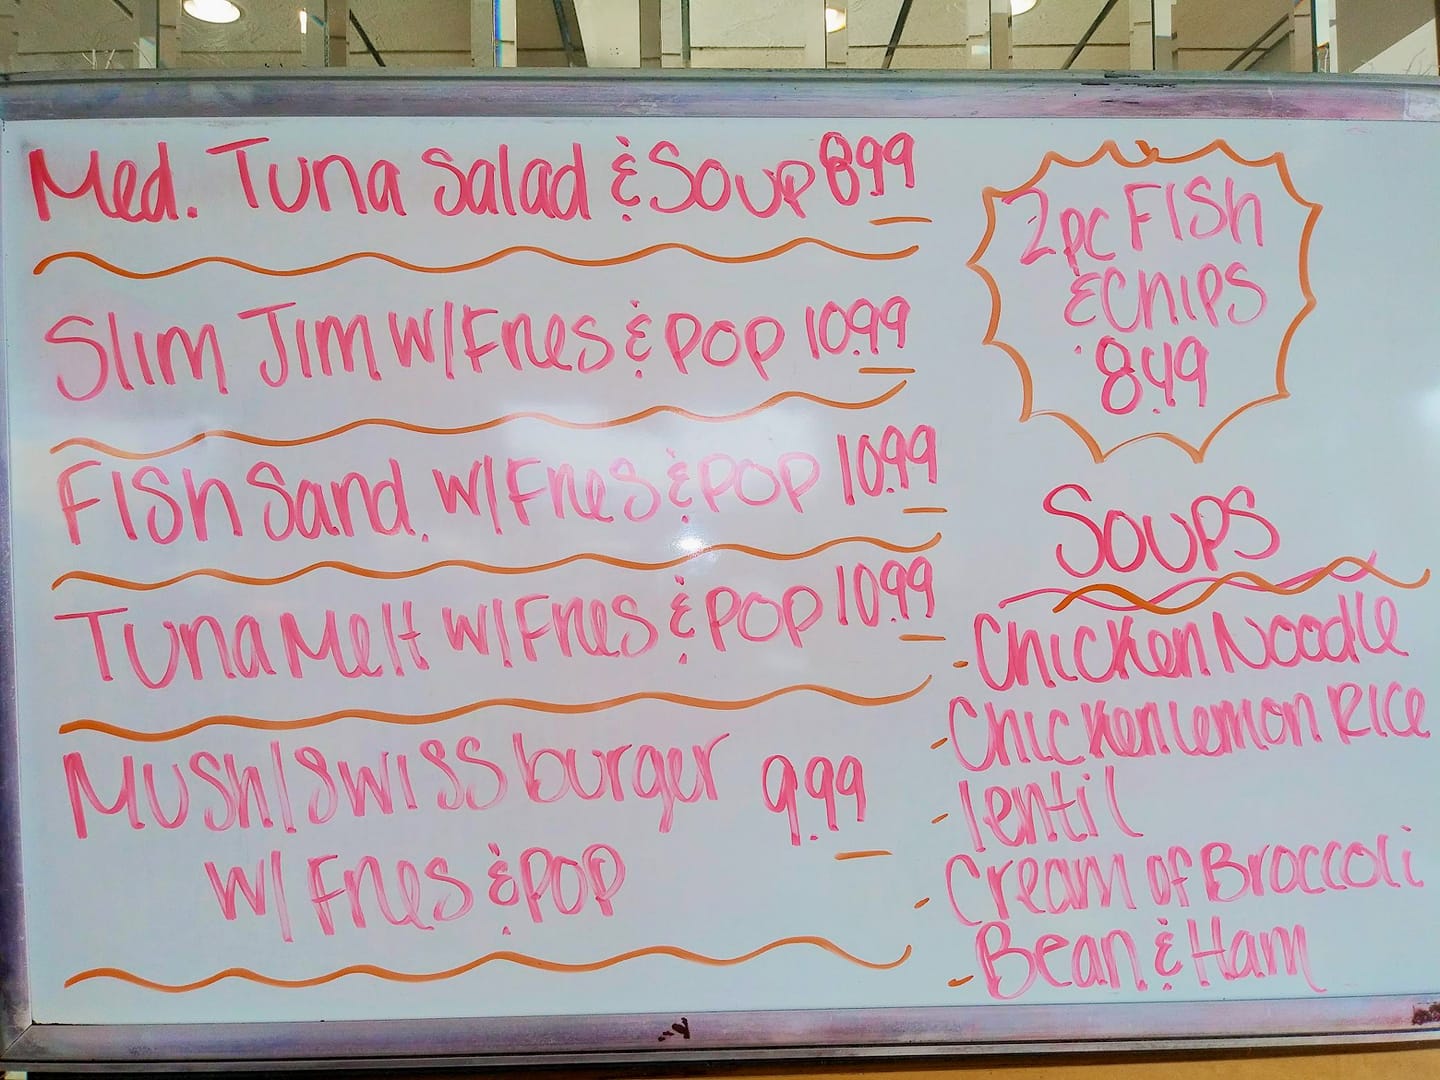 Med. Tuna Salad & Soup 8.99
Slim Jim w/ Fries & Pop 10.99
Fish Sand. w/ Fries & Pop 10.99
Tuna Melt w/ Fries & Pop 10.99
Mush/Swiss burger 9.99
w/ Fries & Pop
2pc Fish
& Chips
8.49
Soups
- Chicken Noodle
- Chicken lemon Rice
- lentil
- Cream of Broccoli
- Bean & Ham